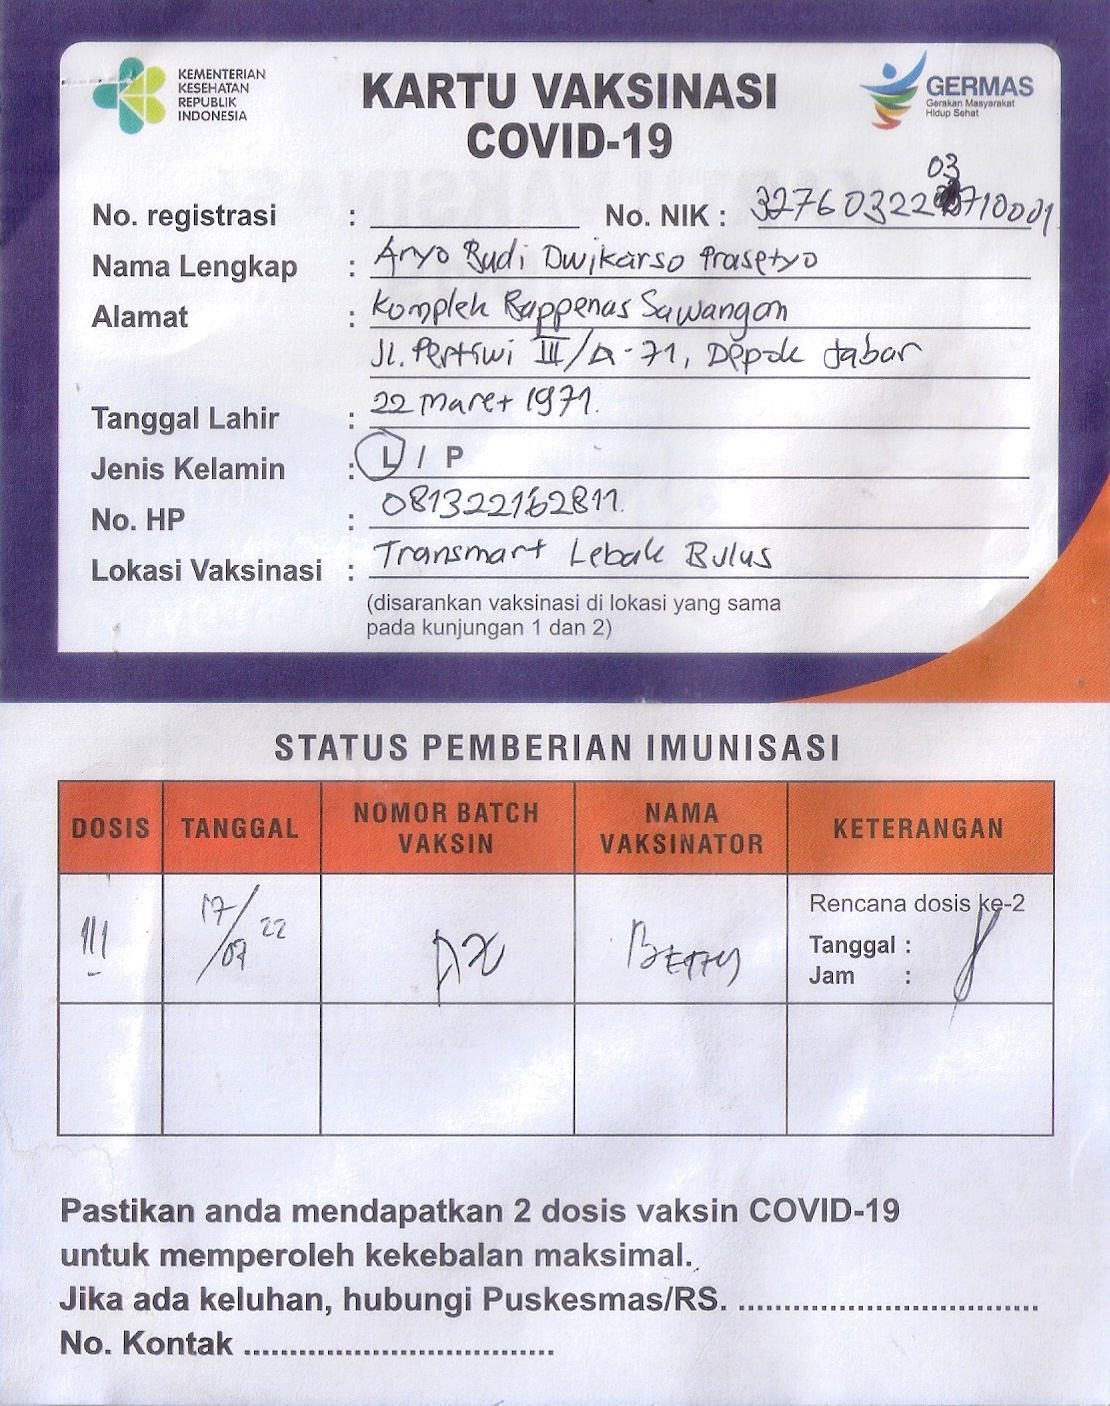 KEMENTERIAN
KESEHATAN
REPUBLIK
INDONESIA
KARTU VAKSINASI
COVID-19
GERMAS
Gerakan Masyarakat
Hidup Sehat
03
No. registrasi : No. NIK : 3276032203710001
Nama Lengkap : Aryo Budi Dwikarso Prasetyo
Alamat : Komplek Bappenas Sawangan
Jl. Pertiwi III/A-71, Depok Jabar
Tanggal Lahir : 22 Maret 1971.
Jenis Kelamin : L / P
No. HP : 081322162811.
Lokasi Vaksinasi : Transmart Lebak Bulus
(disarankan vaksinasi di lokasi yang sama
pada kunjungan 1 dan 2)
STATUS PEMBERIAN IMUNISASI
DOSIS TANGGAL NOMOR BATCH VAKSIN NAMA VAKSINATOR KETERANGAN
III 17/07 22 BETTY Rencana dosis ke-2
Tanggal :
Jam :
Pastikan anda mendapatkan 2 dosis vaksin COVID-19
untuk memperoleh kekebalan maksimal.
Jika ada keluhan, hubungi Puskesmas/RS. ..................................
No. Kontak ..................................